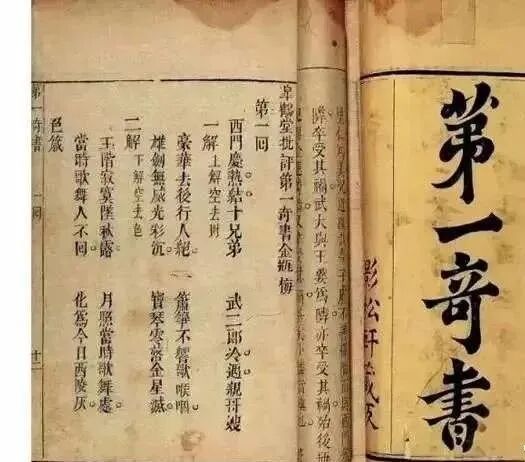 第一奇書
影松軒藏
卒受其禍武大與王婆爲隣亦卒受其禍始後
皐鶴堂批評第一奇書金瓶梅
第一回
西門慶熱結十兄弟　武二郎冷遇親哥嫂
一解上解空去財
豪華去後行人絕　簫箏不響歌喉咽
雄劍無威光彩沉　寶琴零落金星滅
二解下解空去色
玉階寂寞墜秋露　月照當時歌舞處
當時歌舞人不回　化爲今日西陵灰
色箴
第一奇書　一回　十二